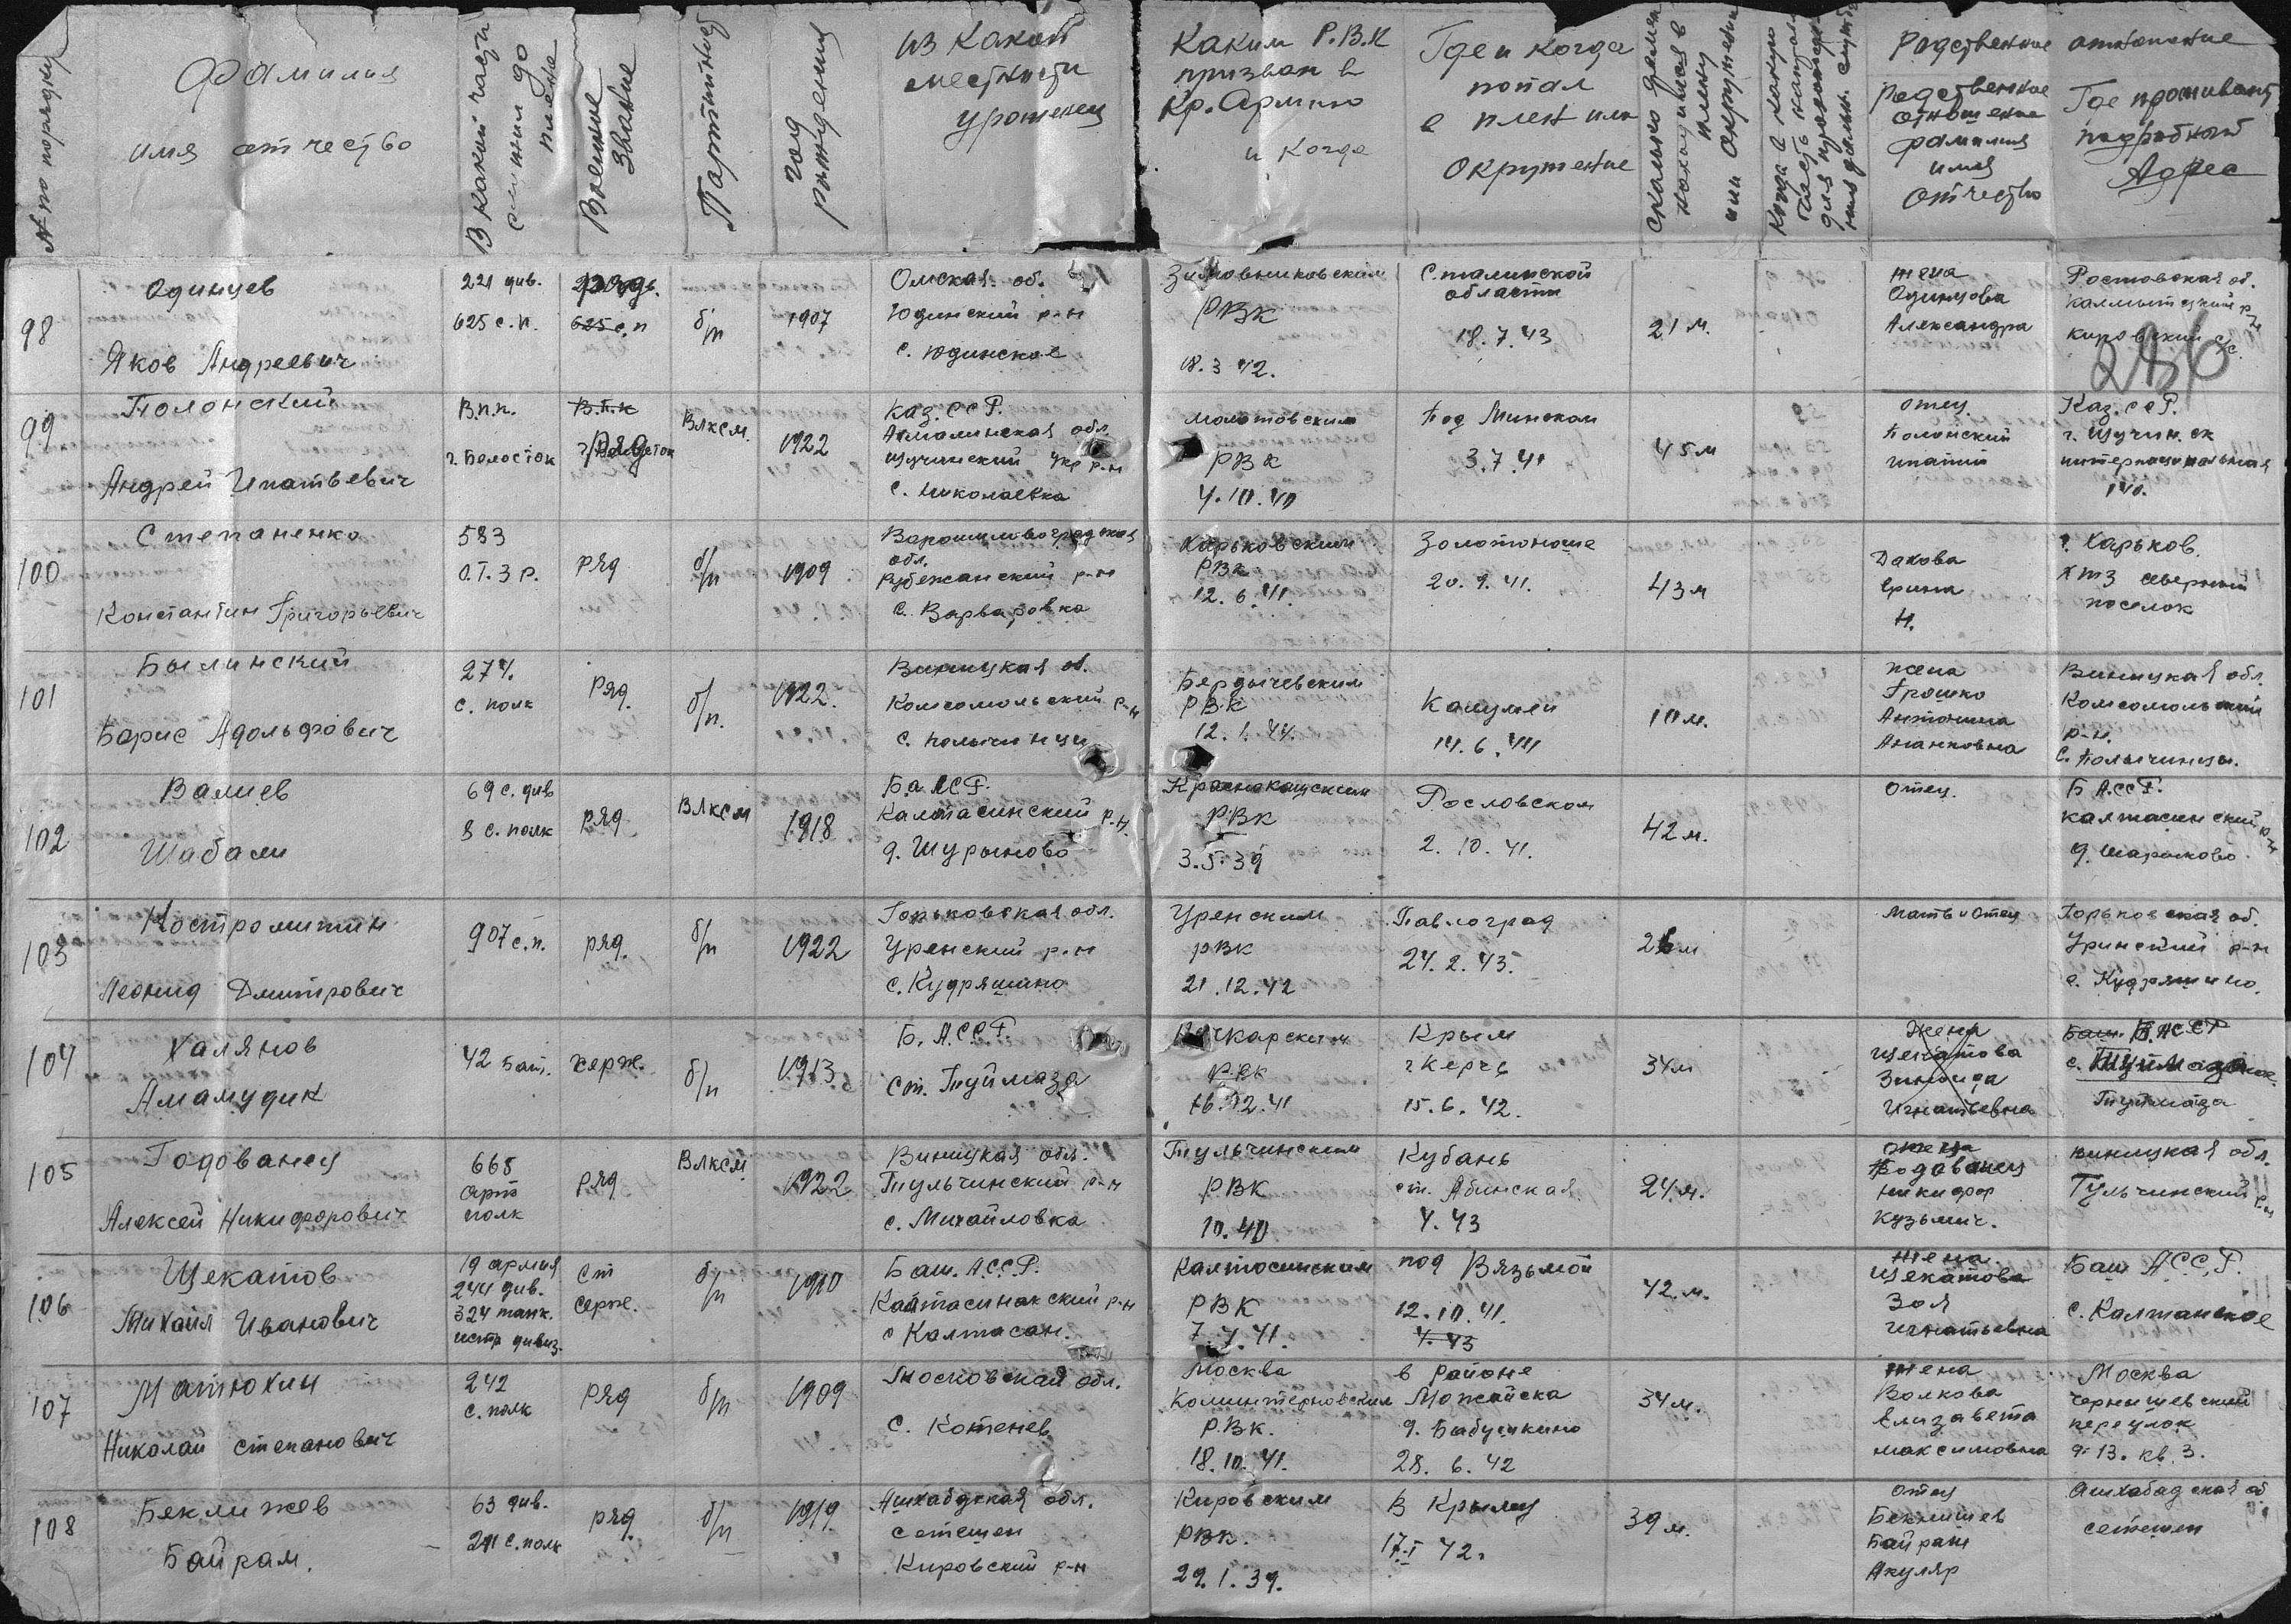 № по порядку
Фамилия
имя отчество
В какой части
служил до
плена
Военное
звание
Партийность
год
рождения
из какой
местности
уроженец
Каким Р.В.К
призван в
Кр. Армию
и когда
Где и когда
попал
в плен или
окружение
сколько времен
находился в
плену
или окружении
Родственные отношение
Родственное
отношение
фамилия
имя
отчество
Где проживает
подробный
Адрес
98
Одинцев
Яков Андреевич
221 див.
625 с.п.
625 с.п
б/п
1907
Омская. об.
Юдинский р-н
с. Юдинское
Зимовниковским
РВК
18.3 42.
Сталинской
области
18.7.43
21 м.
жена
Одинцова
Александра
Ростовская об.
Калмытский р-н
Кировский с/с.
286
99
Полонский
Андрей Ипатьевич
В.п.п.
г. Белосток
В.П.К
Ряд
Влксм.
1922
Каз. ССР.
Акмалинская обл.
Щучинский укр р-н
с. Николаевка
Молотовским
РВК
4.10.40
Под Минском
3.7.41
45 м
отец.
Полонский
Ипатий
Каз. ССР.
г. Щучинск
интернациональная
140.
100
Степаненко
Константин Григорьевич
583
О.Т.З р.
ряд
б/п
1909
Ворошиловоградская
обл.
Рубежанский р-н
с. Варваровка
Харьковским
РВК
12.6.41.
Золотоноше
20.9.41.
43 м
Дакова
Ерина
Н.
г. Харьков.
ХТЗ северный
поселок
101
Былинский
Борис Адольфович
274.
с. полк
Ряд.
б/п.
1922.
Виницкая об.
Комсомольский р-н
с. Полычинци
Бердычевским
РВК
12.1.44.
14.6.44
10 м.
жена
Грошко
Антонина
Ананковна
Виницкая обл.
Комсомольский
р-н.
с. Полычинцы.
102
Валиев
Шабали
69 с. див
8 с. полк
ряд
Влксм
1918
Ба АССР.
Калтасинский р.н.
д. Шурыново
Краснокащским
РВК
3.5.39
Рословском
2.10.41.
42 м.
отец.
Б АССР.
Калтасинский р-н
д. Шариково
103
Костромитин
Леонид Дмитрович
907 с.п.
ряд.
б/п
1922
Горьковская обл.
Уренский р-н
с. Кудряшино
Уренским
РВК
21.12.42
Павлоград
24.2.43.
26 м
Мать и отец
Горьковская об.
Уринский р-н
с. Кудряшино.
104
Халянов
Амамудик
42 бат.
серж.
б/п
1913
Б. АССР.
ст. Туймаза
РВК
16.12.41
Крым
г Керчь
15.6.42.
34 м
Жена
Щекатова
Зинаида
Игнатьевна
Баш. Б. АССР
Туймаза
105
Годованец
Алексей Никифорович
668
арт
полк
ряд
Влксм
1922
Виницкая обл.
Тульчинский р-н
с. Михайловка
Тульчинским
РВК
10.40
Кубань
ст. Абинская
4.43
24 м.
отец
Годованец
Никифор
Кузьмич.
виницкая обл.
Тульчинский р-н
106
Щекатов
Михаил Иванович
19 армия
244 див.
324 танк.
истр дивиз.
ст
серж.
б/п
1910
Баш. А.С.С.Р.
Калтасинакский р-н
с Калтасан.
Калтосинским
РВК
7.7.41.
под Вязьмой
12.10.41.
4.43
42. м.
жена
Щекатова
Зоя
Игнатьевна
Баш АССР.
с. Калтанское
107
Матюхин
Николай степанович
242
с. полк
ряд
б/п
1909
Московская обл.
с. Котенев
Москва
Коминтерновским
РВК.
18.10.41.
в районе
Можайска
д. Бабушкино
28.6.42
34 м.
жена
Волкова
Елизавета
максимовна
Москва
чернышевский
переулок
д. 13. кв. 3.
108
Беклижев
Байрам.
63 див.
291 с. полк
ряд.
б/п
1919.
Ашхабдская обл.
сетешен
Кировский р-н
Кировским
РВК.
29.1.39.
В Крыму
17.I 42.
39 м.
отец
Бекмишев
Байрам
Акуляр
Ашхабадская об
сетешен